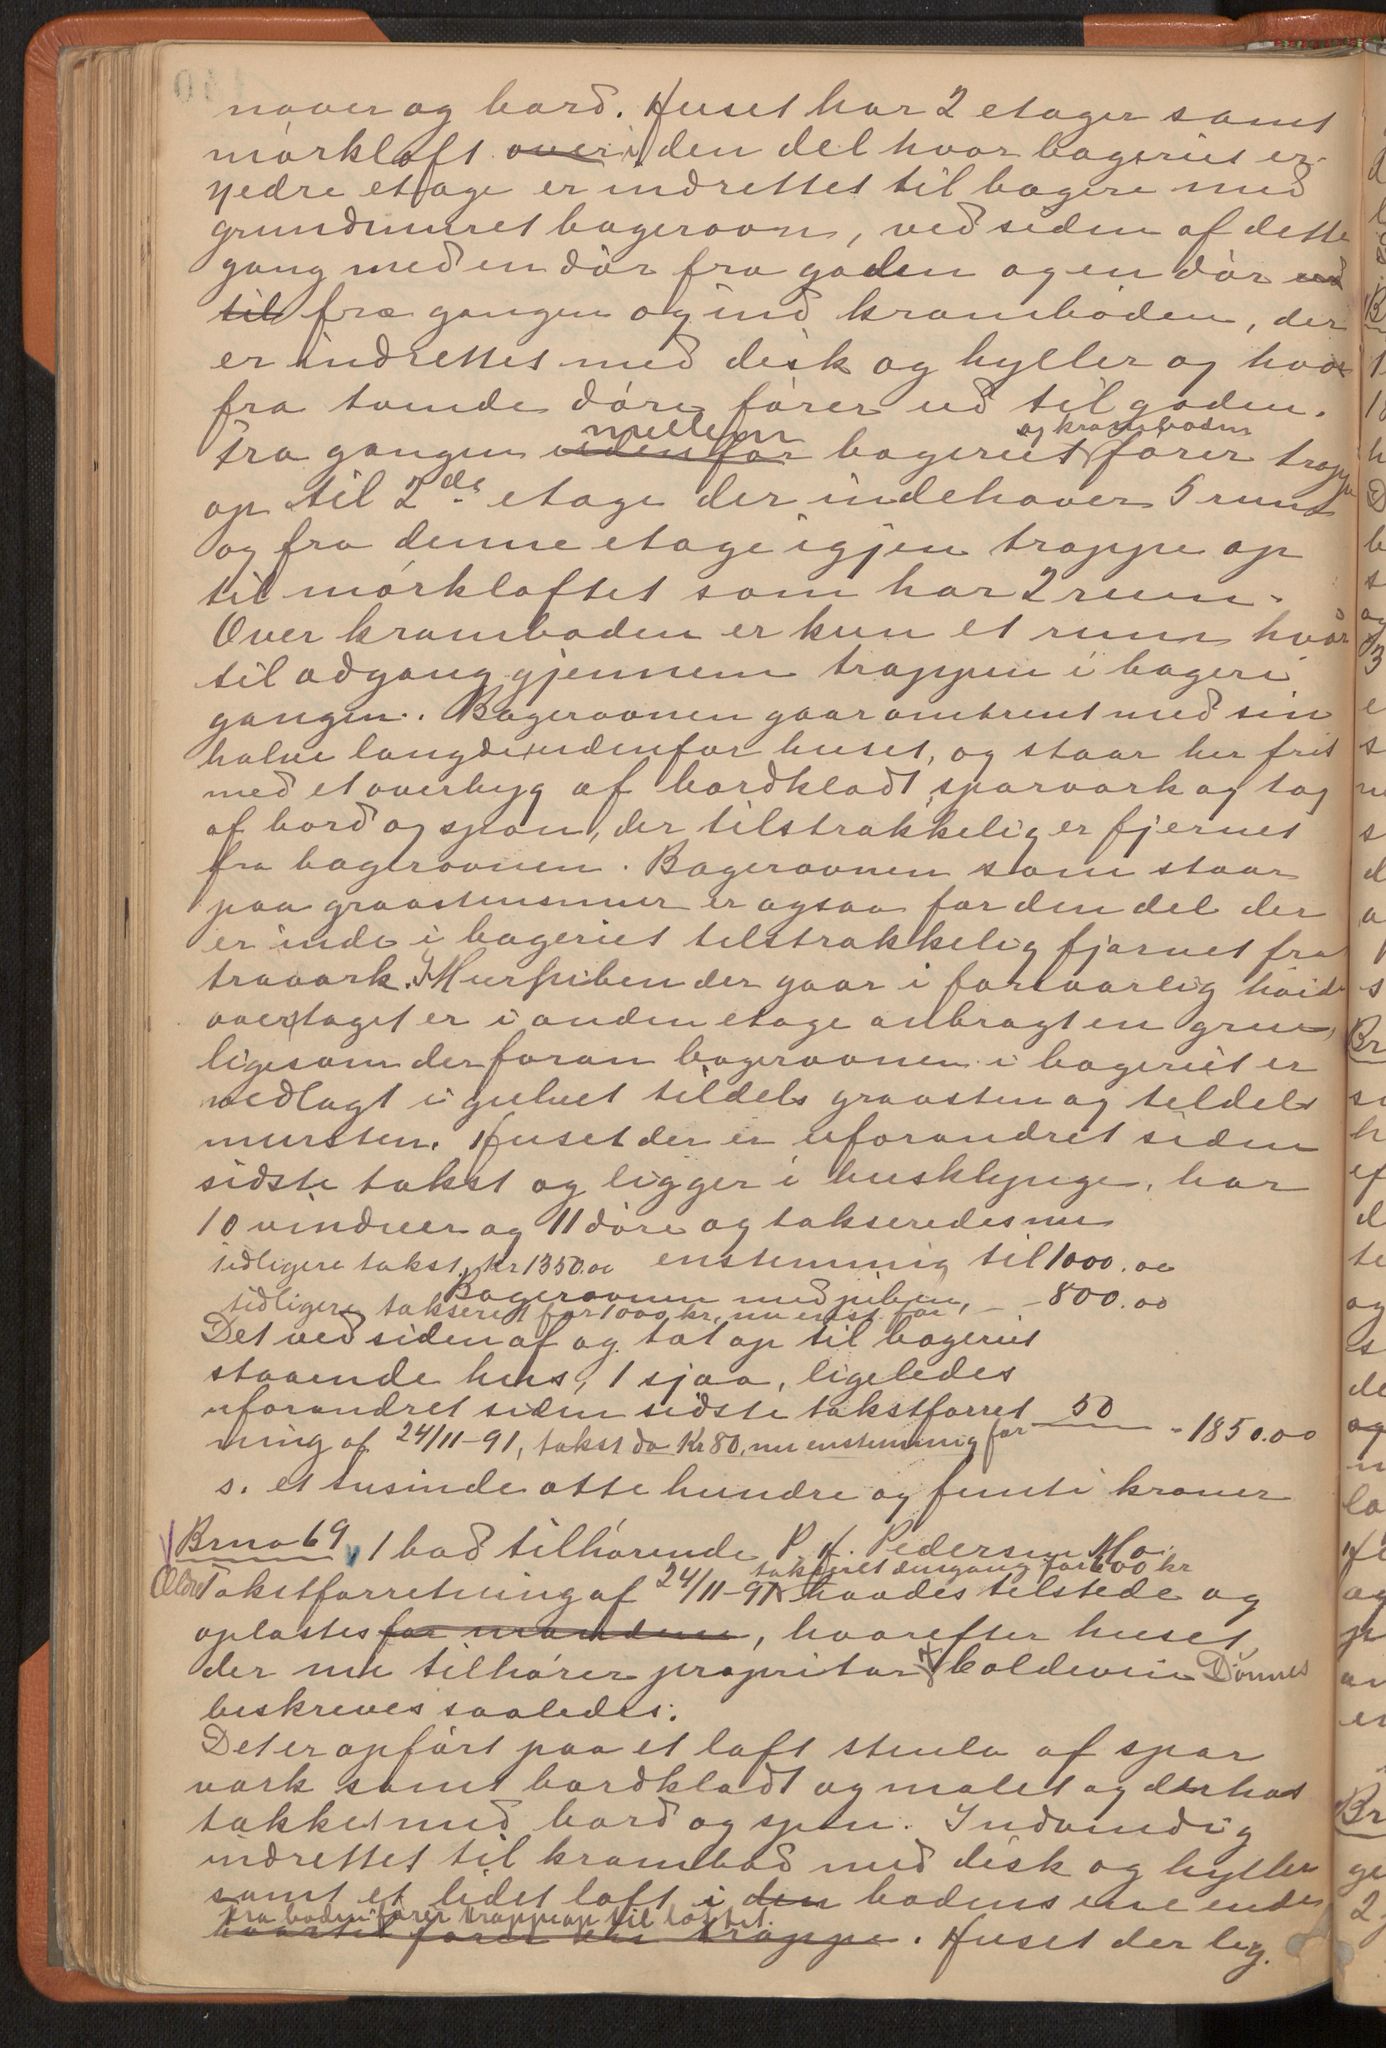 nover og bord. Huset har 2 etager samt
mørkloft over i den del hvor bageriet er.
Nedre etage er indrettet til bageri med
grundmuret bagerovn, ved siden af dette
gang med en dør fra gaden og en dør ud
til fra gangen og ind kramboden, der
er indrettet med disk og hyller og hvor
fra tvende døre fører ud til gaden.
mellem og kramboden
Fra gangen udenfor bageriet fører trappe
op til 2de etage der indehaver 5 rum
og fra denne etage igjen trappe op
til mørkloftet som har 2 rum.
Over kramboden er kun et rum hvor
til adgang gjennem trappen i bageri
gangen. Bagerovnen gaar omtrent med sin
halve længde udenfor huset, og staar her frit
med et overbyg af bordklædt sparværk og tag
af bord og spon, der tilstrækkelig er fjernet
fra bagerovnen. Bagerovnen som staar
paa graastensmur er ogsaa for den del der
er inde i bageriet tilstrækkelig fjærnet fra
træværk. I Murpiben der gaar i forsvarlig høide
over taget er i anden etage anbragt en grue,
ligesom der foran bagerovnen i bageriet er
nedlagt i gulvet tildels graasten og tildels
mursten. Huset der er uforandret siden
sidste takst og ligger i husklynge, har
10 vinduer og 11 døre og takseredes nu
tidligere takst, kr 1350.00 enstemmig til 1000.00
Bagerovnen med piben, - - 800.00
tidligere takseret for 1000 kr. nu enst. for
Det ved siden af og tæt op til bageriet
staaende hus, 1 sjaa, ligeledes
uforandret siden sidste takstforret
ning af 24/11-91, takst da Kr 80, nu enstemmig for 50 - 1850.00
s. et tusinde otte hundre og femti kroner
Brno 69, 1 bod tilhørende P. H. Pedersen Mo.
takseret dengang for 600 kr
Takstforretning af 24/11-91 havdes tilstede og
oplæstes for mændene, hvorefter huset,
der nu tilhører propritær Coldevin Dønnes
beskreves saaledes:
Det er opført paa et loft stuela af spar
værk samt bordklædt og malet og derhos
tækket med bord og spon. Indvendig
indrettet til krambod med disk og hyller
samt et lidet loft i den bodens ene ende
Fra boden fører trappe op til loftet.
hvortil fører en trappe. Huset der lig.